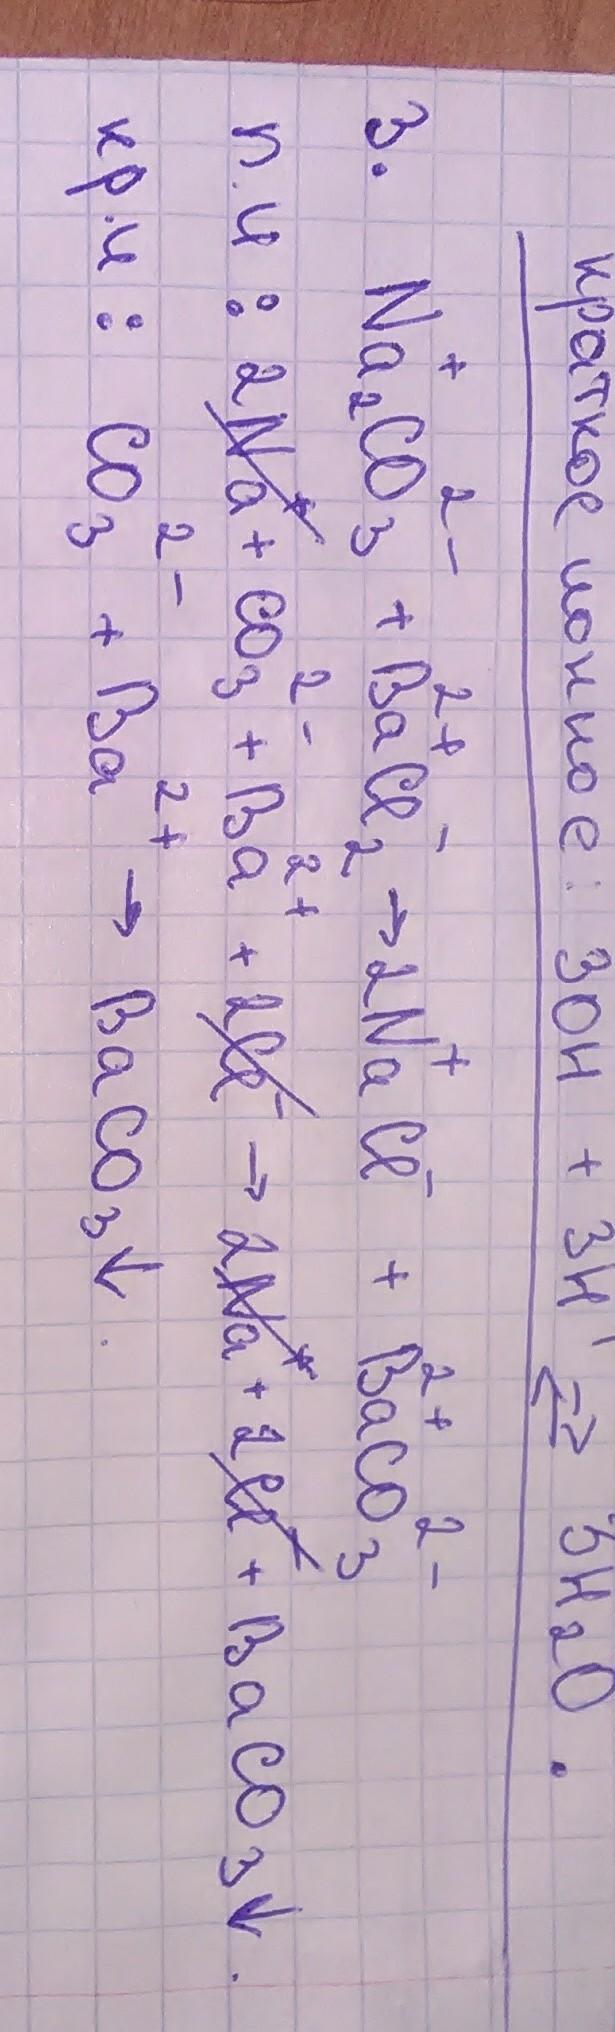 краткое ионное: 3OH + 3H⁺ ⇄ 3H₂O.
3. Na₂⁺CO₃²⁻ + Ba²⁺Cl₂⁻ → 2Na⁺Cl⁻ + Ba²⁺CO₃²⁻
п.и: 2Na⁺ + CO₃²⁻ + Ba²⁺ + 2Cl⁻ → 2Na⁺ + 2Cl⁻ + BaCO₃↓.
кр.и: CO₃²⁻ + Ba²⁺ → BaCO₃↓.